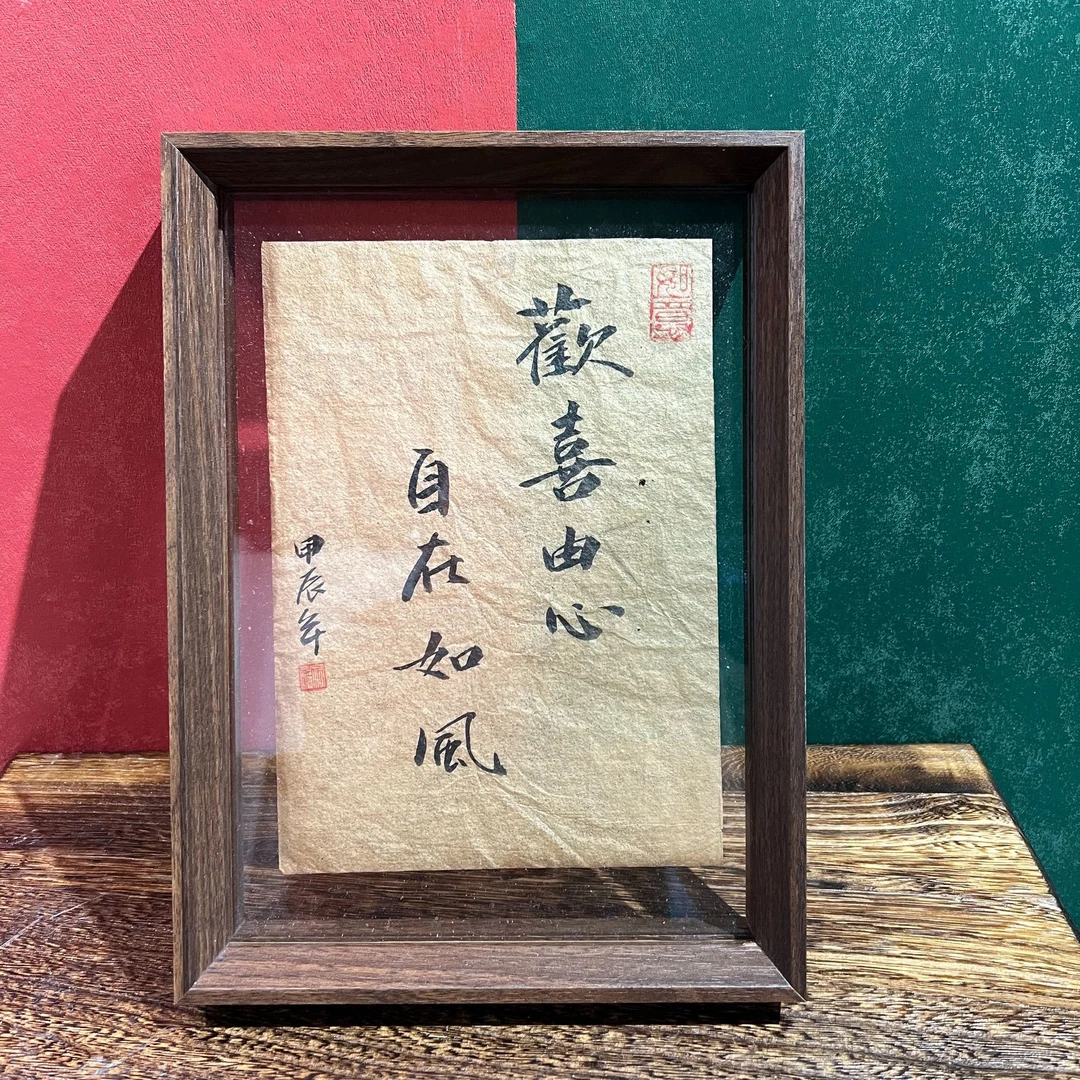 如意
歡喜由心
自在如風
甲辰年